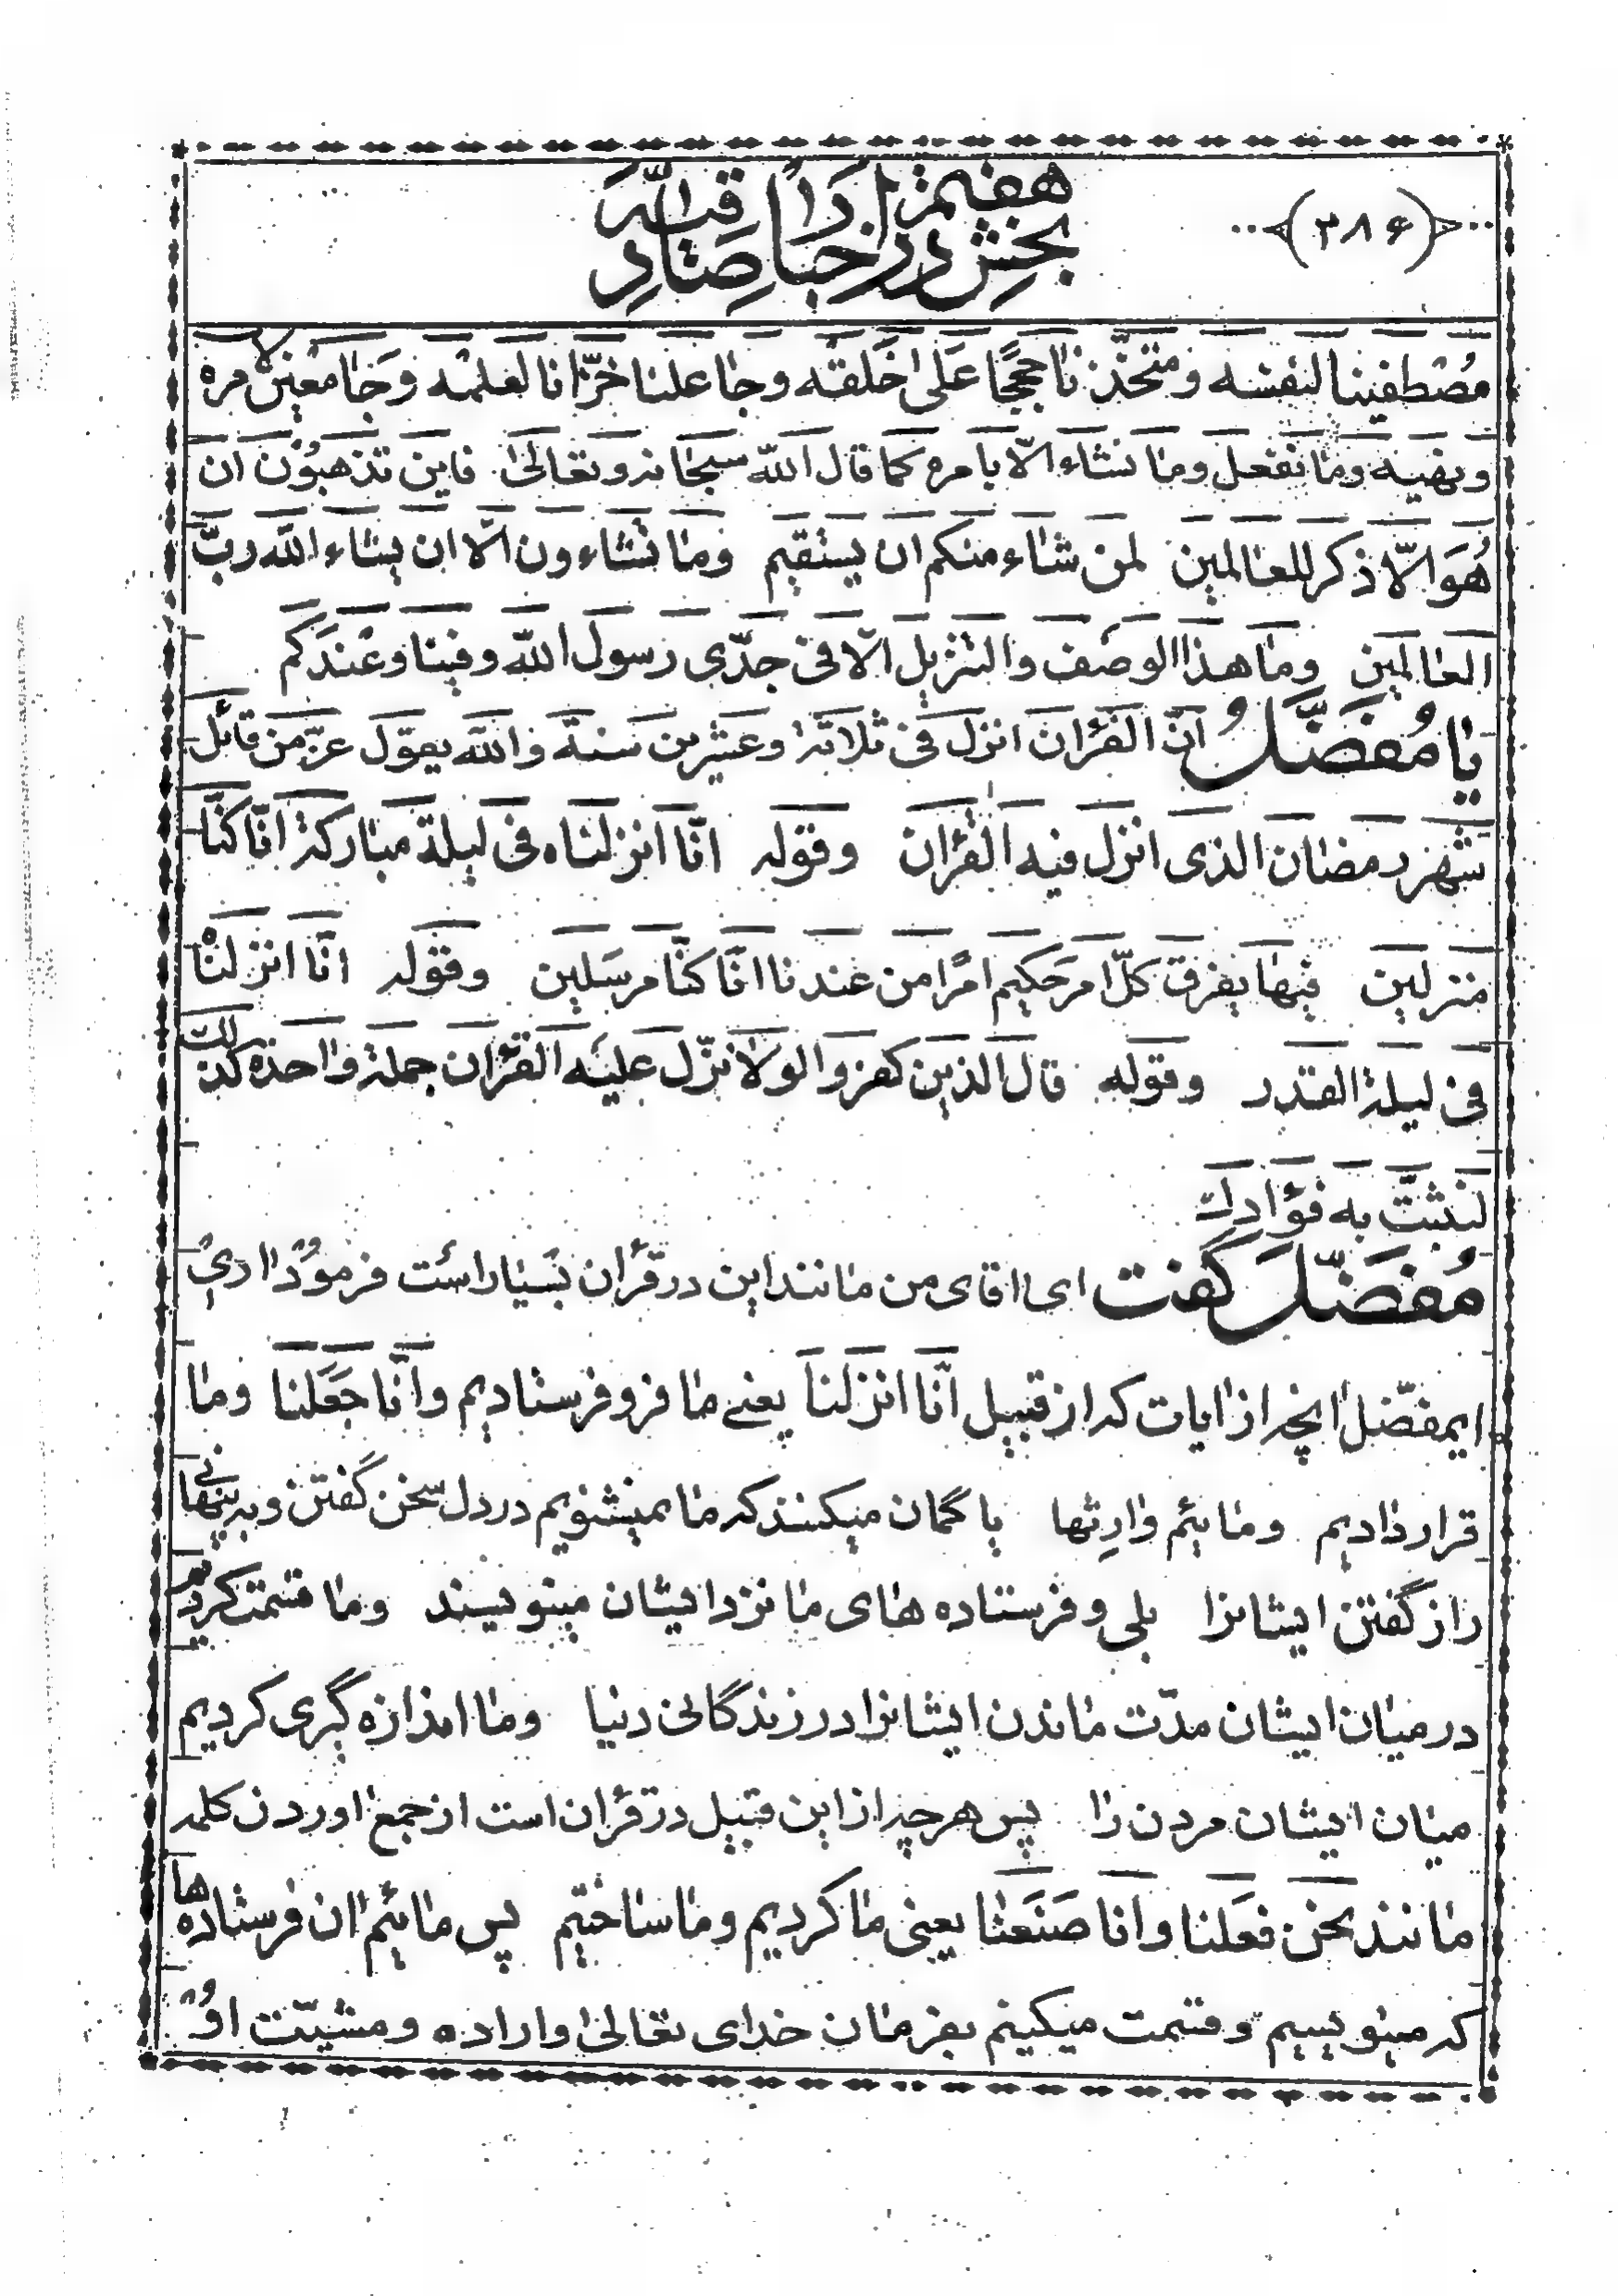 (۳۸۶)
بخش هفتم در اخبار صادقیه
مصطفینا لنفسه و متخذنا حججا علی خلقه و جاعلنا خزانا لعلمه و جامعین لامره
و نهیه و ما نفعل و ما نشاء الّا بامره کما قال اللّه سبحانه و تعالی فاین تذهبون ان
هُوَ الّا ذکر للعالمین لمن شاء منکم ان یستقیم وما تشاءون الّا ان یشاء اللّه ربّ
العالمین وما هذا الوصف والتنزیل الّا فی جدّی رسول اللّه و فینا و عندکم
یا مُفَضَّلُ انّ القرآن انزل فی ثلاثة و عشرین سنة و اللّه یقول عزّ من قائل
شهر رمضان الذی انزل فیه القرآن و قوله انّا انزلناه فی لیلة مبارکة انّا کنّا
منزلین فیها یفرق کلّ امر حکیم امرًا من عندنا انّا کنّا مرسلین و قوله انّا انزلناه
فی لیلة القدر و قوله قال الذین کفروا لولا نزّل علیه القرآن جملة واحدة کذلک
لنثبّت به فؤادک
مُفَضَّل گفت ای اقای من مانند این در قرآن بسیار است فرمود اری
ایمفضّل انچه از ایات که از قبیل انّا انزلنا یعنی ما فرو فرستادیم و انّا جعلنا وما
قرار دادیم و مائیم وارثها یا گمان میکنند که ما نمیشنویم در دل سخن گفتن و به پنهانی
راز گفتن ایشانرا بلی و فرستاده های ما نزد ایشان مینویسند و ما قسمت کردیم
در میان ایشان مدّت ماندن ایشانرا در زندگانی دنیا و ما اندازه گیری کردیم
میان ایشان مردن را پس هر چه از این قبیل در قرآن است از جمع اوردن کلمه
مانند نحن فعلنا و انا صنعنا یعنی ما کردیم و ما ساختیم پس مائیم ان فرستاده ها
که مینویسیم و قسمت میکنیم بفرمان خدای تعالی و اراده و مشیّت او